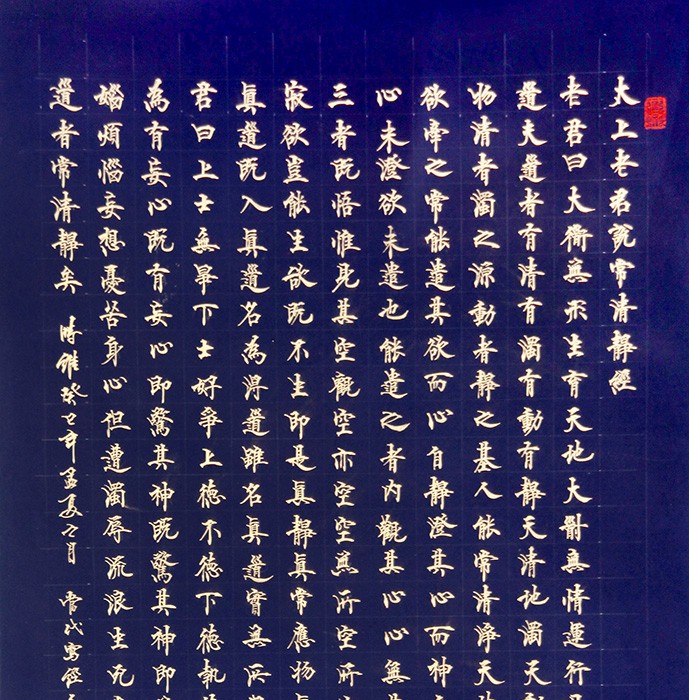 太上老君説常清靜經
老君曰大衜無形生育天地大衜無情運行
道夫道者有清有濁有動有靜天清地濁天
物清者濁之源動者靜之基人能常清淨天
欲牽之常能遣其欲而心自靜澄其心而神
心未澄欲未遣也能遣之者內觀其心心無其
三者既悟惟見其空觀空亦空空無所空所
寂欲豈能生欲既不生即是真靜真常應物
真道既入真道名為得道雖名真道實無所
君曰上士無爭下士好爭上德不德下德執
為有妄心既有妄心即驚其神既驚其神即
煩惱妄想憂苦身心但遭濁辱流浪生死
道者常清靜矣 時維癸巳年孟夏之月 寫經